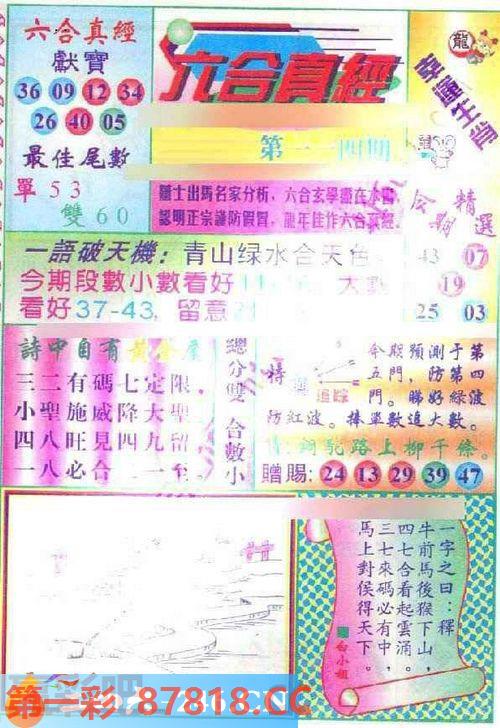 六合真經
獻寶
36 09 12 34
26 40 05
最佳尾數
單 53
雙 60
六合真經
龍
幸運生肖
第一一四期
贏士出馬名家分析，六合玄學盡在本書，
認明正宗謹防假冒，龍年佳作六合真經。
今期精選
43 07
19
25 03
一語破天機：青山绿水合天色
今期段數小數看好
看好37-43, 留意
詩中自有黃金屋
三二有碼七定限。
小聖施威降大聖
四八旺見四九留
一八必合二一至。
總分雙 合數小
特
追踪
今期預測于第
五門，防第四
門。睇好綠波
防紅波。捧單數追大數。
詩：銅駝路上柳千條。
贈賜: 24 13 29 39 47
一字之曰：釋
牛前馬後猴下山，
四七合看起雲涌。
三七來碼必有中，
馬上對候得天下。
白小姐
246.CN
第一彩 87818.CC